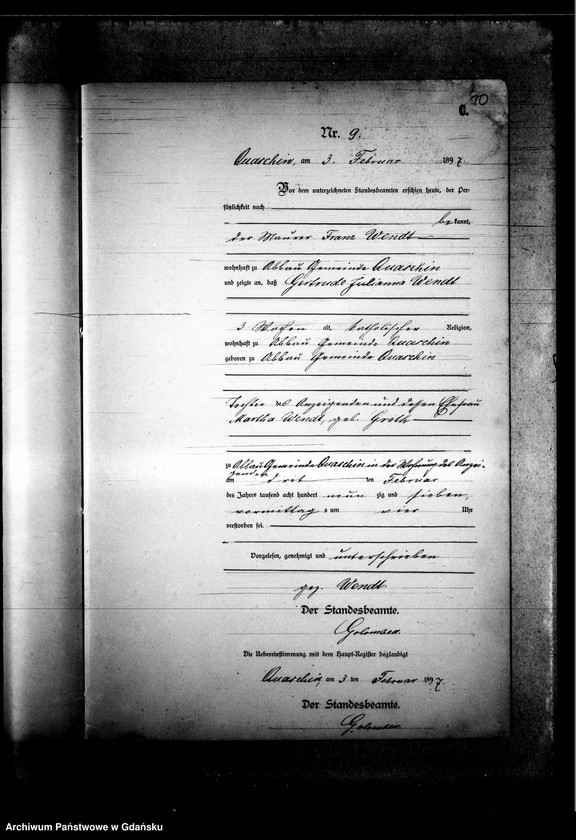 10
C.
Nr. 9.
Quaschin, am 3. Februar 1897.
Vor dem unterzeichneten Standesbeamten erschien heute, der Per-
sönlichkeit nach
bekannt,
der Maurer Franz Wendt
wohnhaft zu Abbau Gemeinde Quaschin
und zeigte an, daß Gertrude Julianna Wendt
3 Wochen alt, katholischer Religion,
wohnhaft zu Abbau Gemeinde Quaschin
geboren zu Abbau Gemeinde Quaschin
Tochter des Anzeigenden und dessen Ehefrau
Martha Wendt, geb. Groth
zu Abbau Gemeinde Quaschin in der Wohnung des Anzei-
genden
am drit ten Februar
des Jahres tausend acht hundert neun zig und sieben,
vormittag s um vier Uhr
verstorben sei.
Vorgelesen, genehmigt und unterschrieben
gez. Wendt
Der Standesbeamte.
Die Uebereinstimmung mit dem Haupt-Register beglaubigt
Quaschin, am 3 ten Februar 1897.
Der Standesbeamte.
Archiwum Państwowe w Gdańsku